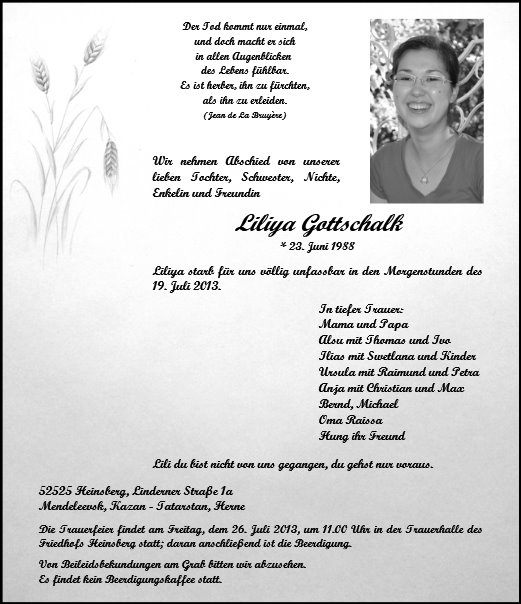 Der Tod kommt nur einmal,
und doch macht er sich
in allen Augenblicken
des Lebens fühlbar.
Es ist herber, ihn zu fürchten,
als ihn zu erleiden.
(Jean de La Bruyère)
Wir nehmen Abschied von unserer
lieben Tochter, Schwester, Nichte,
Enkelin und Freundin
Liliya Gottschalk
* 23. Juni 1988
Liliya starb für uns völlig unfassbar in den Morgenstunden des
19. Juli 2013.
In tiefer Trauer:
Mama und Papa
Alsu mit Thomas und Ivo
Ilias mit Swetlana und Kinder
Ursula mit Raimund und Petra
Anja mit Christian und Max
Bernd, Michael
Oma Raissa
Hung ihr Freund
Lili du bist nicht von uns gegangen, du gehst nur voraus.
52525 Heinsberg, Linderner Straße 1a
Mendeleevsk, Kazan - Tatarstan, Herne
Die Trauerfeier findet am Freitag, dem 26. Juli 2013, um 11.00 Uhr in der Trauerhalle des
Friedhofs Heinsberg statt; daran anschließend ist die Beerdigung.
Von Beileidsbekundungen am Grab bitten wir abzusehen.
Es findet kein Beerdigungskaffee statt.